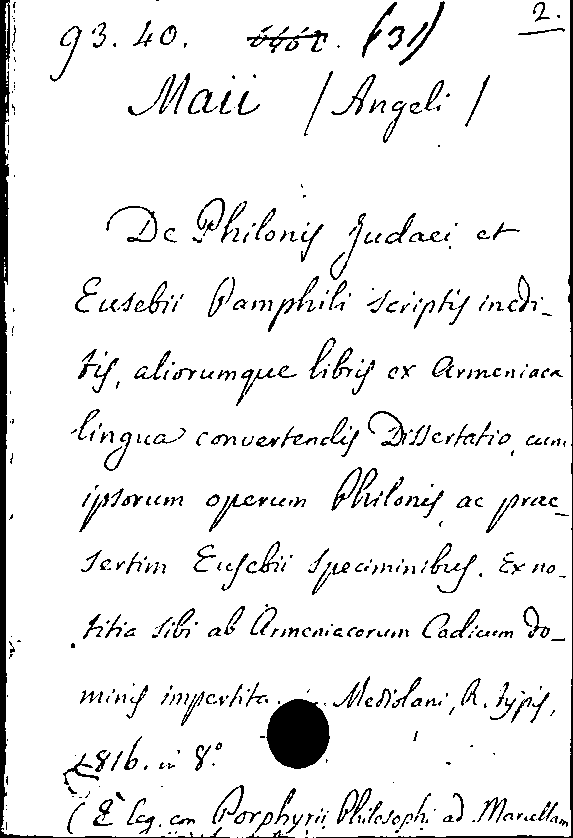 2.
93. 40. (31)
Maii / Angeli /
De Philonis Judaei et
Eusebii Pamphili scriptis inedi-
tis, aliorumque libris ex Armeniaca
lingua convertendis Dissertatio, cum
ipsorum operum Philonis, ac prae-
sertim Eusebii speciminibus. Ex no-
titia sibi ab Armeniacorum Codicum Do-
minis impertita. Mediolani, R. typis,
1816. in 8.º
(È leg. con Porphyrii Philosophi ad Marcellam